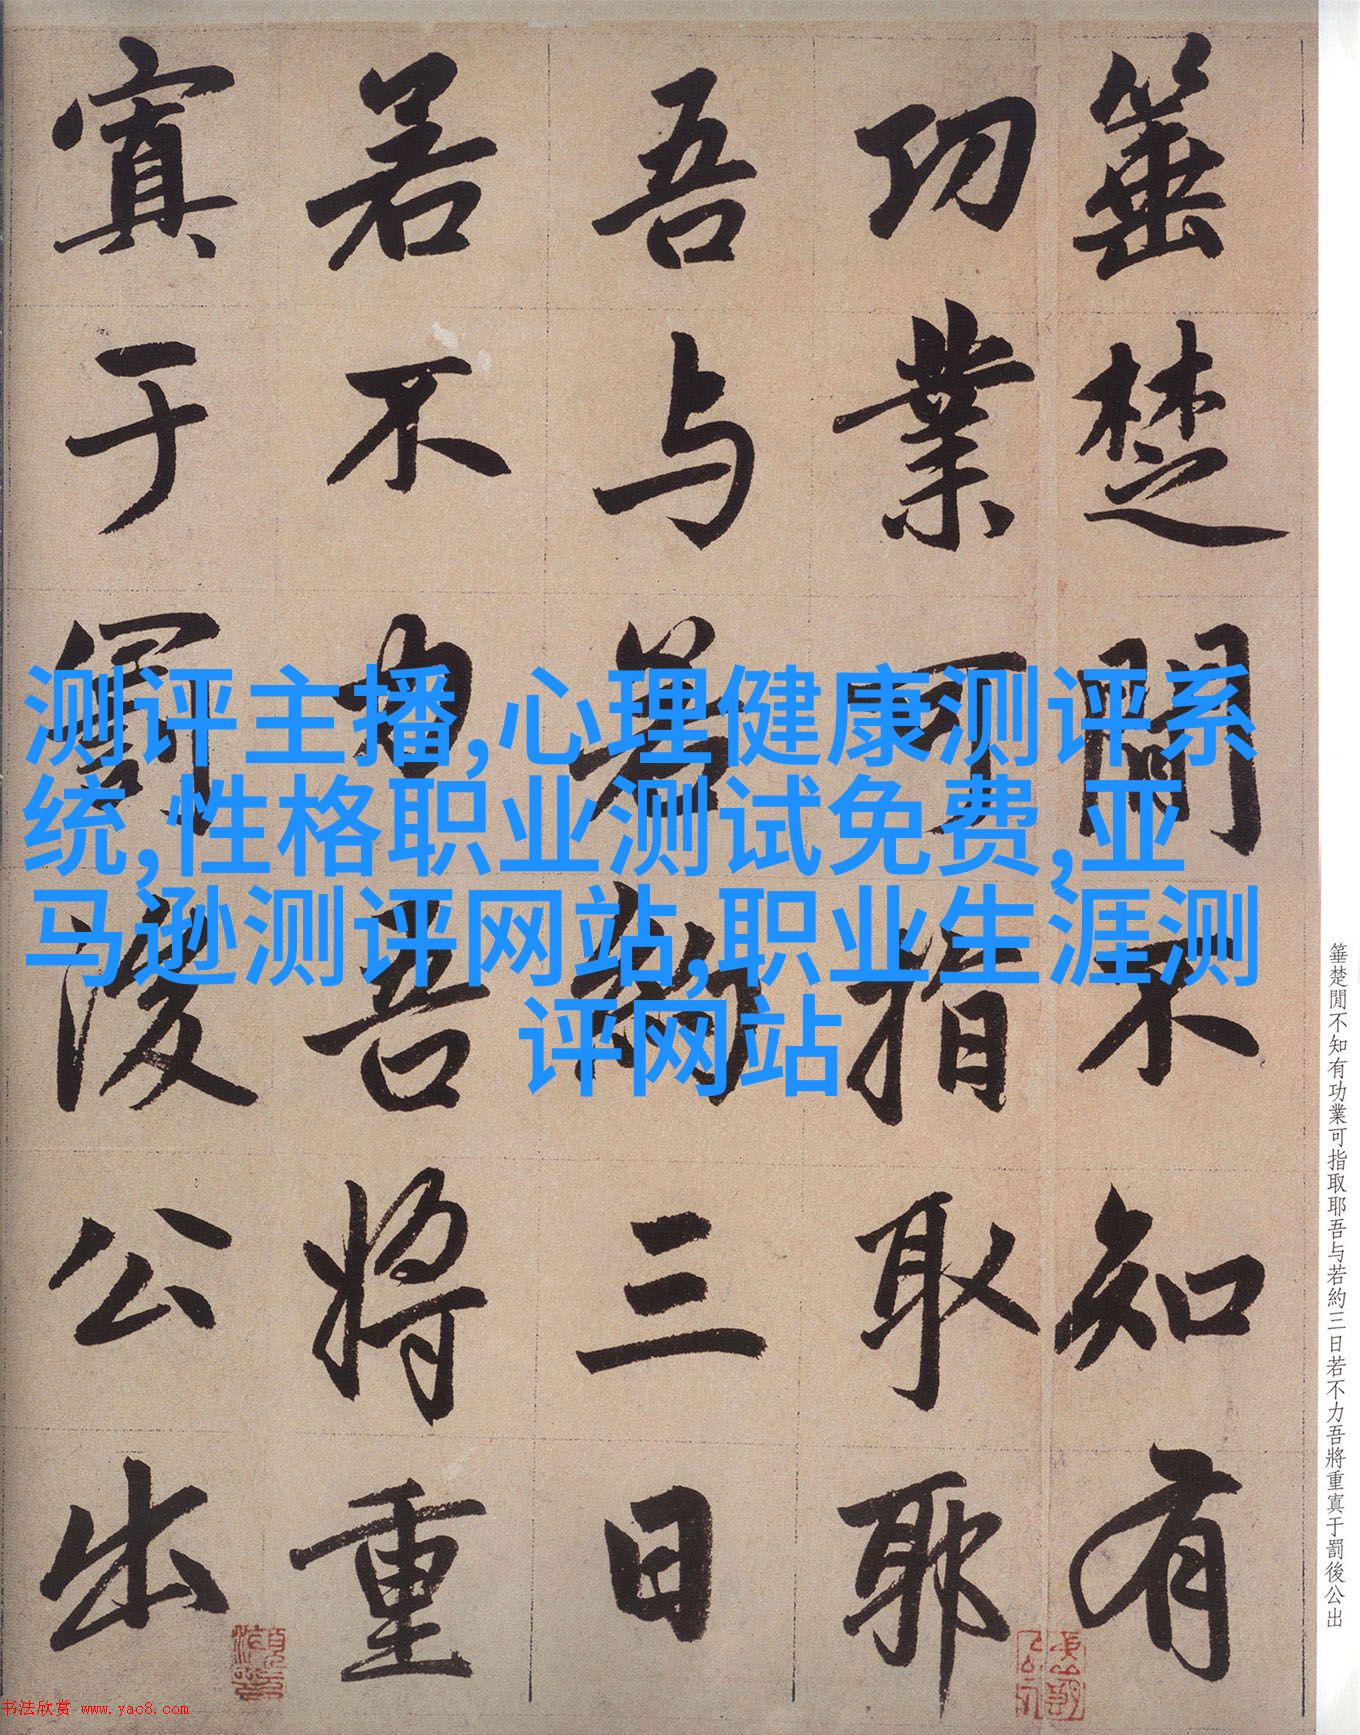 箠楚閒不知有
功業可指取耶
吾与若約三日
若不力吾將重
寘于罰後公出
测评主播,心理健康测评系
统,性格职业测试免费,亚
马逊测评网站,职业生涯测
评网站
箠楚閒不知有功業可指取耶吾与若約三日若不力吾將重寘于罰後公出
书法欣赏 www.yac8.com